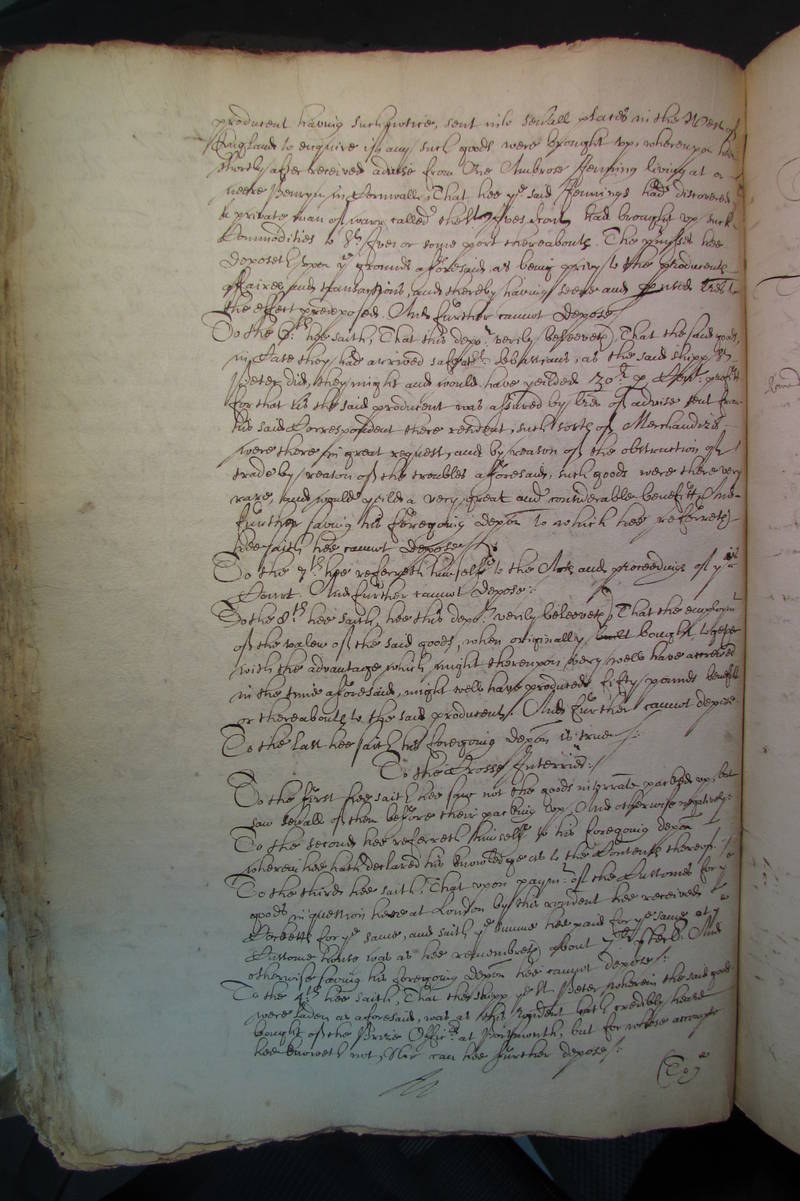 producent having such notice, sent into severall places in the West of
England to enquire if any such goods were brought up, whereupon hee
shortly after received advise from One Ambrose Jennings living at or
neere Penryn in Cornwall, That hee ye said Jennings had discovered
a private man of warr called the had brought up such
Commodities to St Ives or some port thereabouts. The premisses hee
deposeth upon ye grounds aforesaid, as being privy to the producents
affaires and transactions, and thereby having seene and perused lres to
the effect predeposed. And further cannot depose
To the 6th hee saith, That this depont verily beleeveth That the said goods,
in case they had arrived safe at St Sebastians, as the said shipp St
Peter did, they might and would have yeilded 30 li p Cent. profitt
for that hee the said producent was assured by lres of advise sent from
his said Correspondent there resident, such sorts of Merchandize
were there in great request, and by reason of the obstruction of
trade by reason of the troubles aforesaid, such goods were there very
rare, and would yeild a very great and considerable benefitt And
further saving his foregoing depon to which hee referreth
hee saith hee cannot depose
To the 7th hee referreth himselfe to the Acts and proceedings of this
Court. And further cannot depose:
To the 8th hee saith, hee this depont verily beleeveth, That the employmt
of the valew of the said goods, when originally bought together
with the advantage which might thereupon very well have accrewed
in the time aforesaid, might well have produced fifty pounds benefitt
or thereabouts to the said producent. And further cannot depose
To the last hee saith his foregoing depon is true
To the Crosse Interries:
To the first hee saith hee saw not the goods interrate packed up, but
saw severall of them before their packing up. And otherwise negatively:
To the second hee referreth himselfe to his foregoing depon
wherein hee hath declared his knowledge as to the Contents thereof.
To the third hee saith, That upon paymt of the Customes for ye
goods in question heere at London by this rondent hee received
Cocketts for ye same, and saith ye summe hee paid for ye same at ye
Custome house was as hee remembreth about 7 li sterl. And
otherwise saving his foregoing depon hee cannot depose:
To the 4th hee saith, That the shipp ye St Peter wherein the said goods
were laden as aforesaid, was as this rondent hath credibly heard
bought of the Prize Officrs at Portsmouth, but for whose accompt
hee knoweth not, Nor can hee further depose:
(To ye